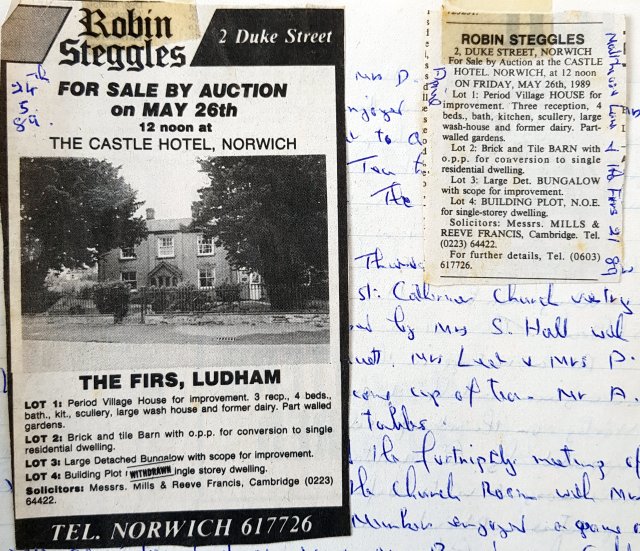 Robin
Steggles
2 Duke Street
24th
5.
89.
FOR SALE BY AUCTION
on MAY 26th
12 noon at
THE CASTLE HOTEL, NORWICH
THE FIRS, LUDHAM
LOT 1: Period Village House for improvement. 3 recp., 4 beds.,
bath., kit., scullery, large wash house and former dairy. Part walled
gardens.
LOT 2: Brick and tile Barn with o.p.p. for conversion to single
residential dwelling.
LOT 3: Large Detached Bungalow with scope for improvement.
LOT 4: Building Plot WITHDRAWN ingle storey dwelling.
Solicitors: Messrs. Mills & Reeve Francis, Cambridge (0223)
64422.
TEL. NORWICH 617726
ROBIN STEGGLES
2, DUKE STREET, NORWICH
For Sale by Auction at the CASTLE
HOTEL. NORWICH, at 12 noon
ON FRIDAY, MAY 26th, 1989
Lot 1: Period Village HOUSE for
improvement. Three reception, 4
beds., bath, kitchen, scullery, large
wash-house and former dairy. Part-
walled gardens.
Lot 2: Brick and Tile BARN with
o.p.p. for conversion to single
residential dwelling.
Lot 3: Large Det. BUNGALOW
with scope for improvement.
Lot 4: BUILDING PLOT, N.O.E.
for single-storey dwelling.
Solicitors: Messrs. MILLS &
REEVE FRANCIS, Cambridge. Tel.
(0223) 64422.
For further details, Tel. (0603)
617726.
The Firs
Mrs D.
enjoyed
to
The
St. Catherines Church
by Mrs S. Hall
Mrs P.
cup of tea. Mr A.
tables.
the fortnightly meeting of
the Church Room with
Members enjoyed a game of